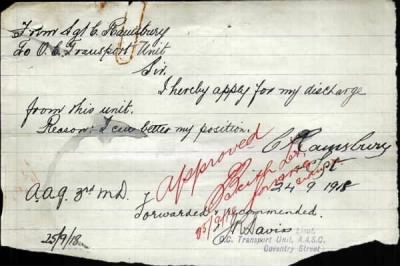 From Sgt C Ramsbury
To O.C. Transport Unit
Sir.
I hereby apply for my discharge
from this unit.
Reason: I can better my position.
C Ramsbury
Sgt
Approved
24 9 1918
A.A.G. 3rd M.D.
Forwarded & recommended.
Davis
Lieut.
O.C. Transport Unit, A.A.S.C.
Coventry Street
25/9/18